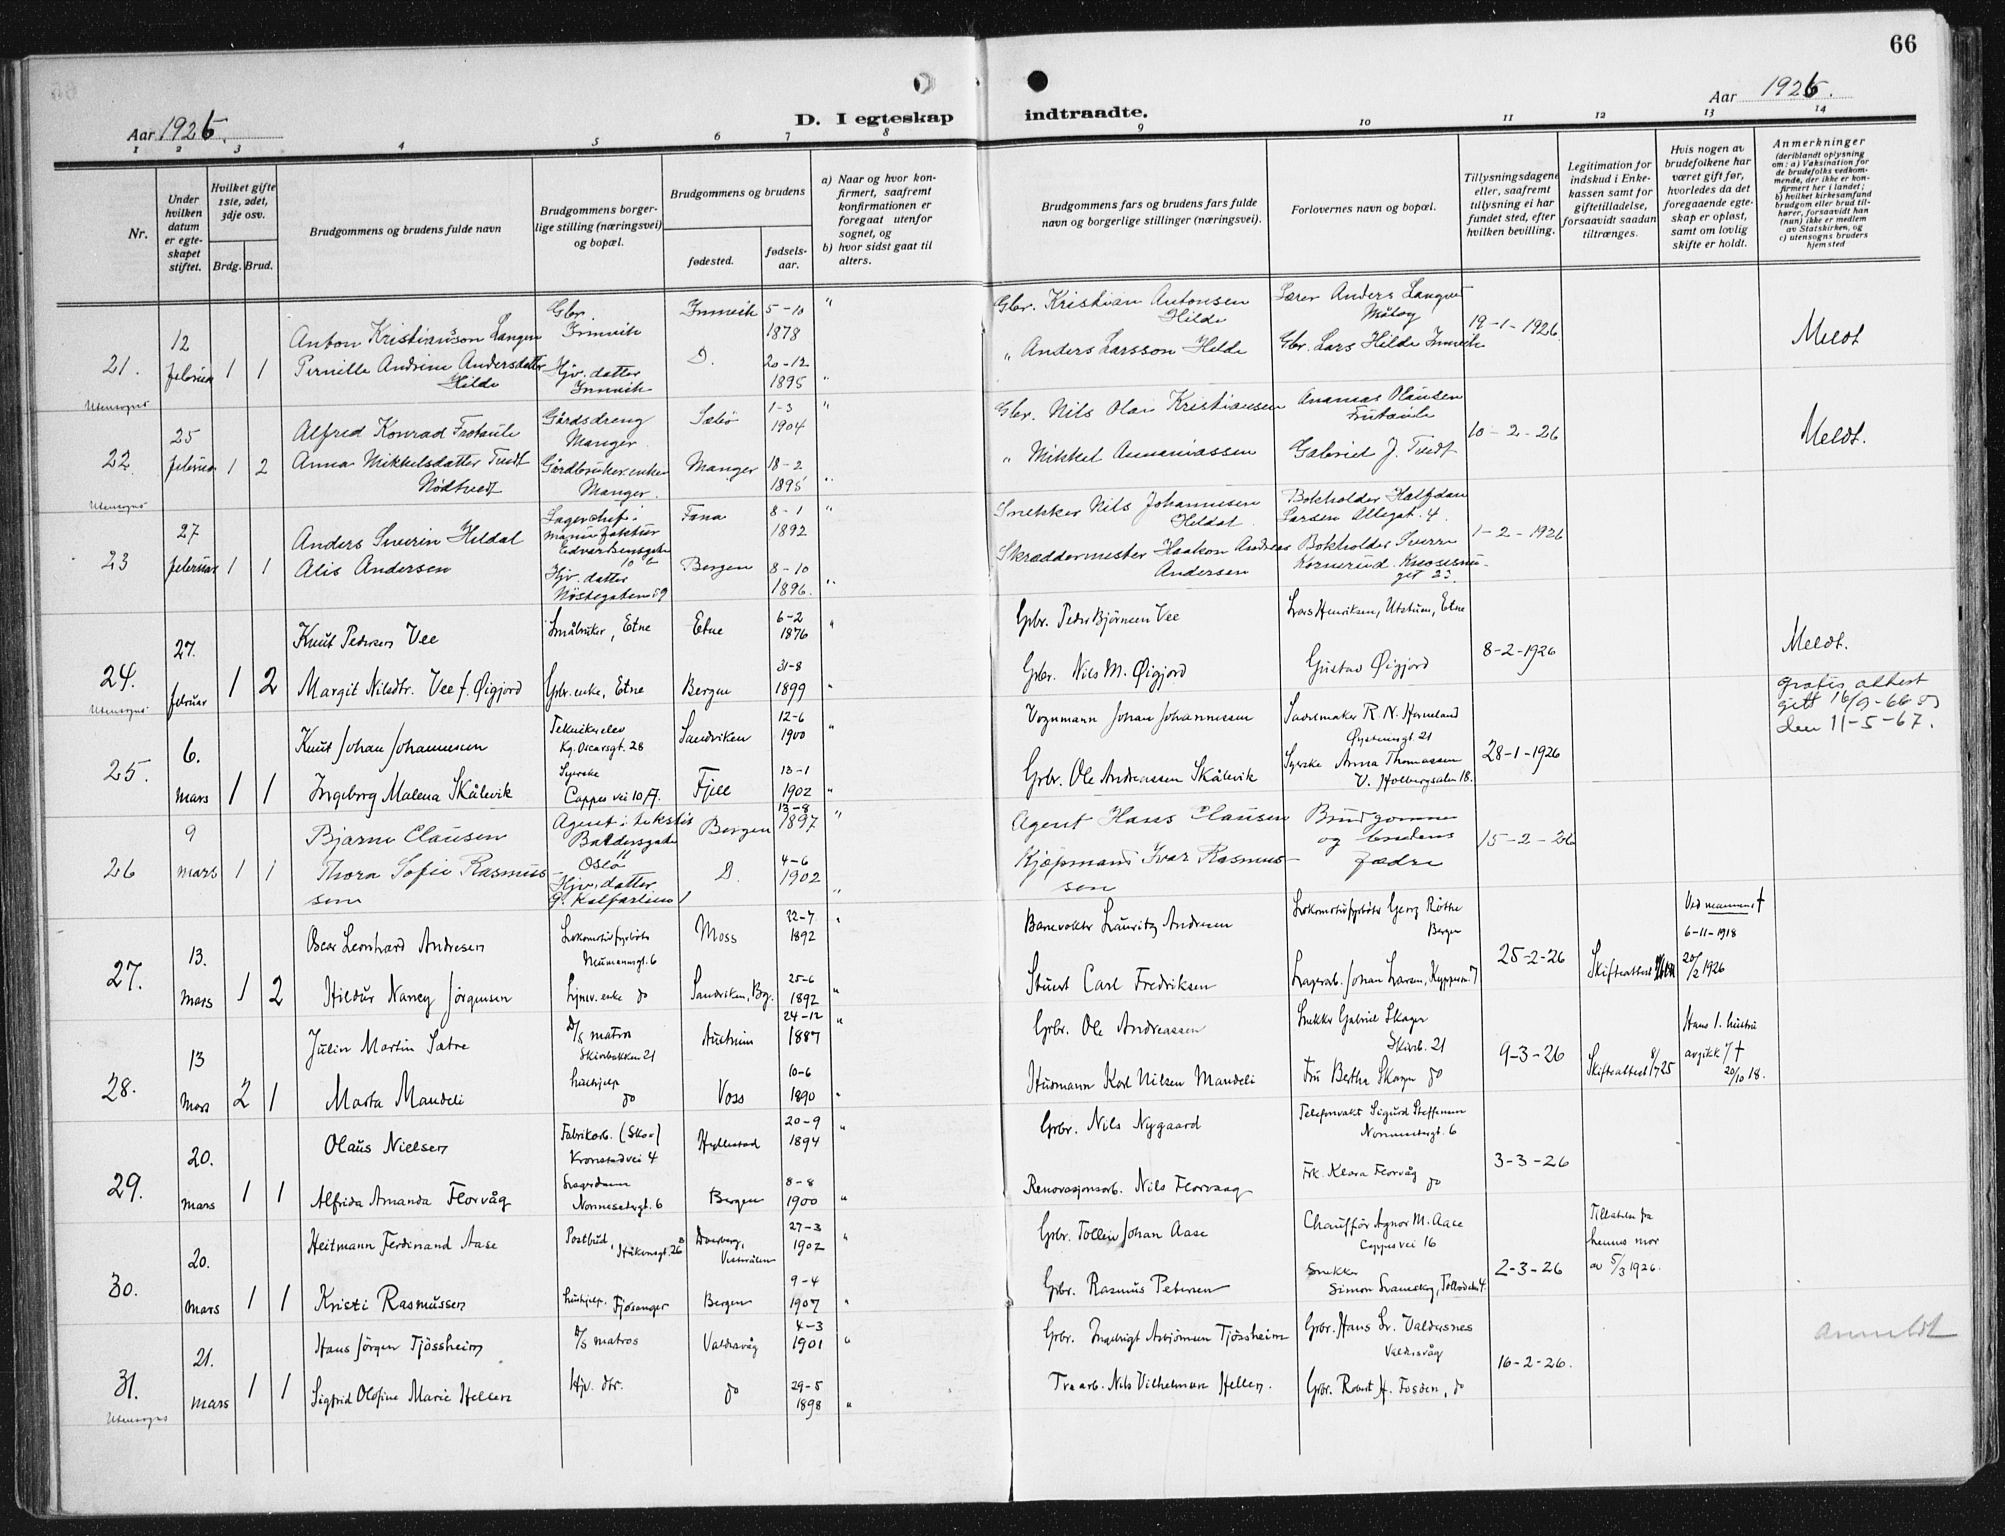 66
Aar 1926.
D. I egteskap indtraadte.
Aar 1926.
1 2 3 4 5 6 7 8 9 10 11 12 13 14
Nr.
Under hvilken datum er egteskapet stiftet.
Hvilket gifte 1ste, 2det, 3dje osv.
Brdg. Brud.
Brudgommens og brudens fulde navn
Brudgommens borgerlige stilling (næringsvei) og bopæl.
Brudgommens og brudens
fødested. fødselsaar.
a) Naar og hvor konfirmert, saafremt konfirmationen er foregaat utenfor sognet, og
b) hvor sidst gaat til alters.
Brudgommens fars og brudens fars fulde navn og borgerlige stillinger (næringsvei).
Forlovernes navn og bopæl.
Tillysningsdagene eller, saafremt tillysning ei har fundet sted, efter hvilken bevilling.
Legitimation for indskud i Enkekassen samt for giftetilladelse, forsaavidt saadan tiltrænges.
Hvis nogen av brudefolkene har været gift før, hvorledes da det foregaaende egteskap er opløst, samt om lovlig skifte er holdt.
Anmerkninger
(deriblandt oplysning om: a) Vaksination for de brudefolks vedkommende, der ikke er konfirmert her i landet; b) hvilket kirkesamfund brudgom eller brud tilhører, forsaavidt han (hun) ikke er medlem av Statskirken, og c) utensogns bruders hjemsted
21. 12 februar 1 1
Anton Kristiansson Langen Gbr. Innvik Innvik 5-10 1878 "
Gbr. Kristian Antonsen Hilde Lærer Anders Langen Måløy 19-1-1926 Meldt
Pernille Andrine Andersdatter Hilde Hjv. datter Innvik D. 20-12 1895 "
" Anders Larsson Hilde Gbr. Lars Hilde Innvik
Utensogns
22. 25 februar 1 2
Alfred Konrad Gårdsdreng Manger Sæbø 1-3 1904 "
Gbr. Nils Olai Kristiansen Ananias Olausen 10-2-26 Meldt.
Anna Mikkelsdatter Tvedt Nødtvedt Gårdbruker.enke Manger. Manger 18-2 1895 "
" Mikkel Annaniassen Gabriel J. Tvedt
Utensogns
23 27 februar 1 1
Anders Severin Heldal Lagerchef i manufaktur Edvardsensgate 10 Fana 8-1 1892 "
Snekker Nils Johannessen Heldal. Bokholder Halfdan Larsen Allegat. 4. 1-2-1926
Alis Andersen Hjv. datter Nøstegaten 59 Bergen 8-10 1896. "
Skræddermester Haakon Andreas Andersen Bokholder Sverre
24. 27. februar 1 2
Knut Pedersen Vee Småbruker, Etne Etne 6-2 1876 "
Gbr. Peder Bjørnsen Vee Lars Henriksen, Utstum, Etne 8-2-1926 Meldt.
Margit Nilsdtr. Vee f. Øigjord Gbr. enke, Etne Bergen 31-8 1899 "
Gbr. Nils M. Øigjord Gustav Øigjord
gratis attest gitt 16/9-66 og den 11-5-67.
Utensogns
25. 6. mars 1 1
Knut Johan Johannessen Teknikerelev Kg. Oscarsgt. 28 Sandviken 12-6 1900 "
Vognmann Johan Johannessen Sadelmaker R. N. Herneland Øystensgt 21 28-1-1926
Ingeborg Malena Skålevik Syerske Cappes vei 10 A. Fjell 13-1 1902 "
Gbr. Ole Andreassen Skålevik Syerske Anna Thomassen V. Holbergsalm 18.
26 9 mars 1 1
Bjarne Clausen Agent i tekstil Baldersgade 11 Oslo Bergen 13-8 1897 "
Agent Hans Clausen Brudgommens og brudens fædre 15-2-26
Thora Sofie Rasmussen Hjv. datter G. Kalfarlien 1 D. 4-6 1902 "
Kjøpmand Ivar Rasmussen
27. 13. mars 1 2
Oscar Leonhard Andresen Lokomotivfyrbøter Neumannsgt. 6 Moss 22-7 1892 "
Banevokter Lauritz Andresen Lokomotivfyrbøter Georg Røthe Bergen 25-2-26
Ved mannens † 6-11-1918
Hildur Nancy Jørgensen Syerv. enke do Sandviken, Bg. 25-6 1892 "
Stuert Carl Fredriksen Lagerarb. Johan Larsen, 7 Skifteattest 20/2 1926
28. 13 mars 2 1
Julin Martin Sætre D/S matros Skivebakken 21 Austrheim 24-12 1887 "
Gbr. Ole Andreassen Snekker Gabriel Skagen Skivb. 21 9-3-26 Skifteattest 8/7 25
Hans 1. hustru avgikk v/ † 20/10 18.
Marta Mandeli hushjelp do Voss 10-6 1890 "
Husmann Karl Nilsen Mandeli Fru Bertha Skagen do
29. 20. mars 1 1
Olaus Nielsen Fabrikarb. (Sko-) Kronstadvei 4 Hyllestad 20-9 1894 "
Gbr. Nils Nygaard Telefonvakt Sigurd Steffensen Nonnesetergt. 6 3-3-26
Alfrida Amanda Florvåg Lagerdame Nonnesetergt. 6 Bergen 8-8 1900 "
Renovasjonsarb. Nils Florvaag Frk. Klara Florvåg do
30. 20. mars 1 1
Heitmann Ferdinand Aase Postbud, Håkonsgt. 26 B Dverberg, Vesterålen 27-3 1902 "
Gbr. Tollin Johan Aase Chauffør Agnor M. Aase Cappes vei 16 2-3-26
Tillatelse fra hennes mor av 5/3 1926.
Kristi Rasmussen hushjelp. Fjøsanger Bergen 9-4 1907 "
Gbr. Rasmus Petersen Snekker Simon 4.
31. 21. mars 1 1
Hans Jørgen Tjössheim D/S matros Valdersvåg 4-3 1901 "
Gbr. Ingebrigt Asbjörnsen Tjössheim Gbr. Hans Lr. Valdersnes Valdersvåg 16-2-26. anmeldt
Sigfrid Olofine Marie Hellen Hjv. dtr. do 29-5 1898 "
Trearb. Nils Vilhelmsen Hellen. Gbr. Robert H. Fosden, do
Utensogns